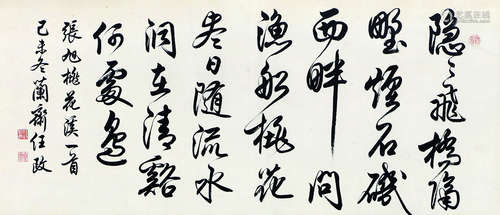 隱〻飛橋隔
野煙石磯
西畔問
漁船桃花
盡日隨流水
洞在清谿
何處邊
張旭桃花溪一首
己未冬蘭齋任政